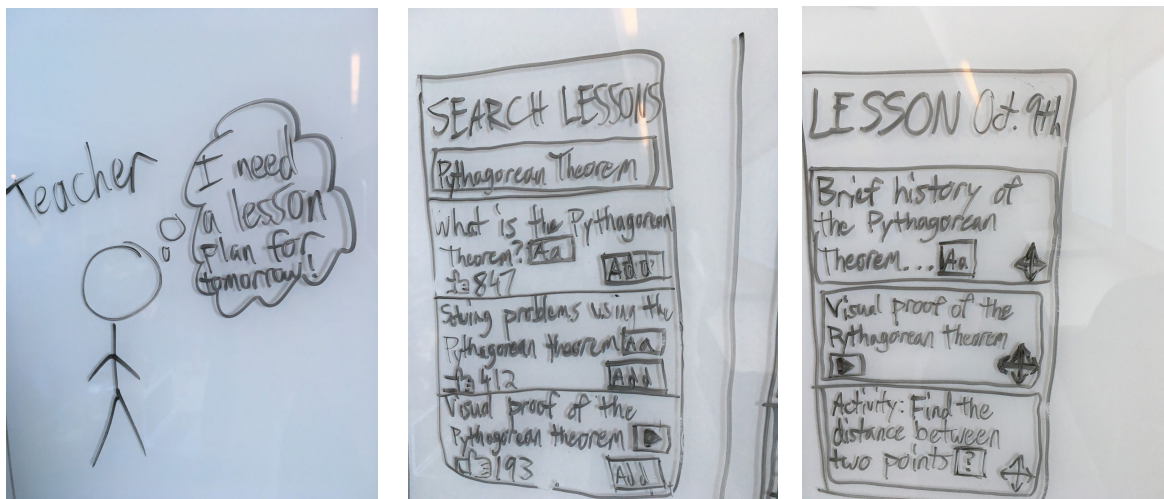 Teacher
I need
a lesson
plan for
tomorrow!
SEARCH LESSONS
Pythagorean Theorem
What is the Pythagorean
Theorem? Aa
Add
847
Solving problems using the
Pythagorean theorem Aa
412 Add
Visual proof of the
Pythagorean theorem
193 Add
LESSON Oct. 9th
Brief history of
the Pythagorean
Theorem... Aa
Visual proof of the
Pythagorean theorem
Activity: Find the
distance between
two points ?